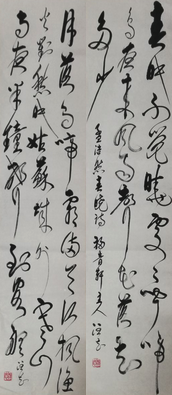 春眠不觉晓处处闻啼
鸟夜来风雨声花落知
多少
孟浩然春晓诗 杨音轩主人
月落乌啼霜满天江枫渔
火对愁眠姑苏城外寒山
寺夜半钟声到客船